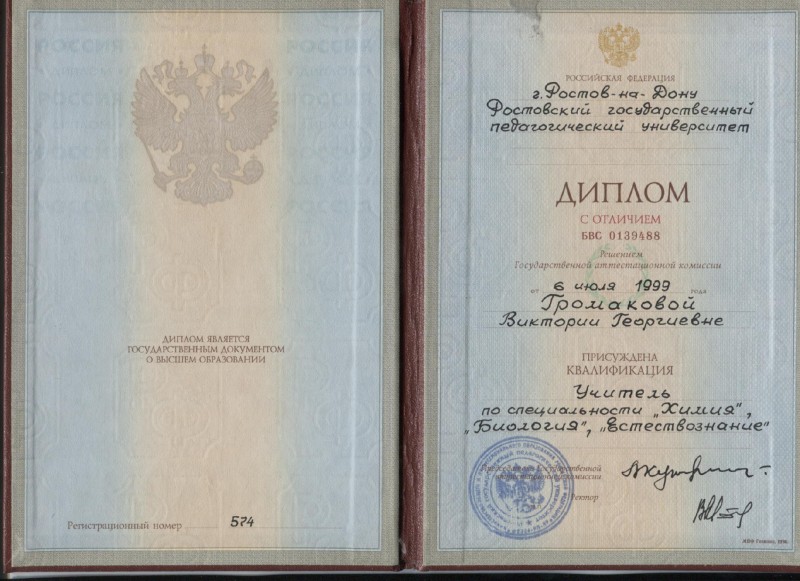 ДИПЛОМ ЯВЛЯЕТСЯ
ГОСУДАРСТВЕННЫМ ДОКУМЕНТОМ
О ВЫСШЕМ ОБРАЗОВАНИИ
Регистрационный номер 574
РОССИЙСКАЯ ФЕДЕРАЦИЯ
г. Ростов-на-Дону
Ростовский государственный
педагогический университет
ДИПЛОМ
С ОТЛИЧИЕМ
БВС 0139488
Решением
Государственной аттестационной комиссии
от 6 июля 1999 года
Громаковой
Виктории Георгиевне
ПРИСУЖДЕНА
КВАЛИФИКАЦИЯ
Учитель
по специальности „Химия",
„Биология", „Естествознание"
Председатель Государственной
аттестационной комиссии
Ректор